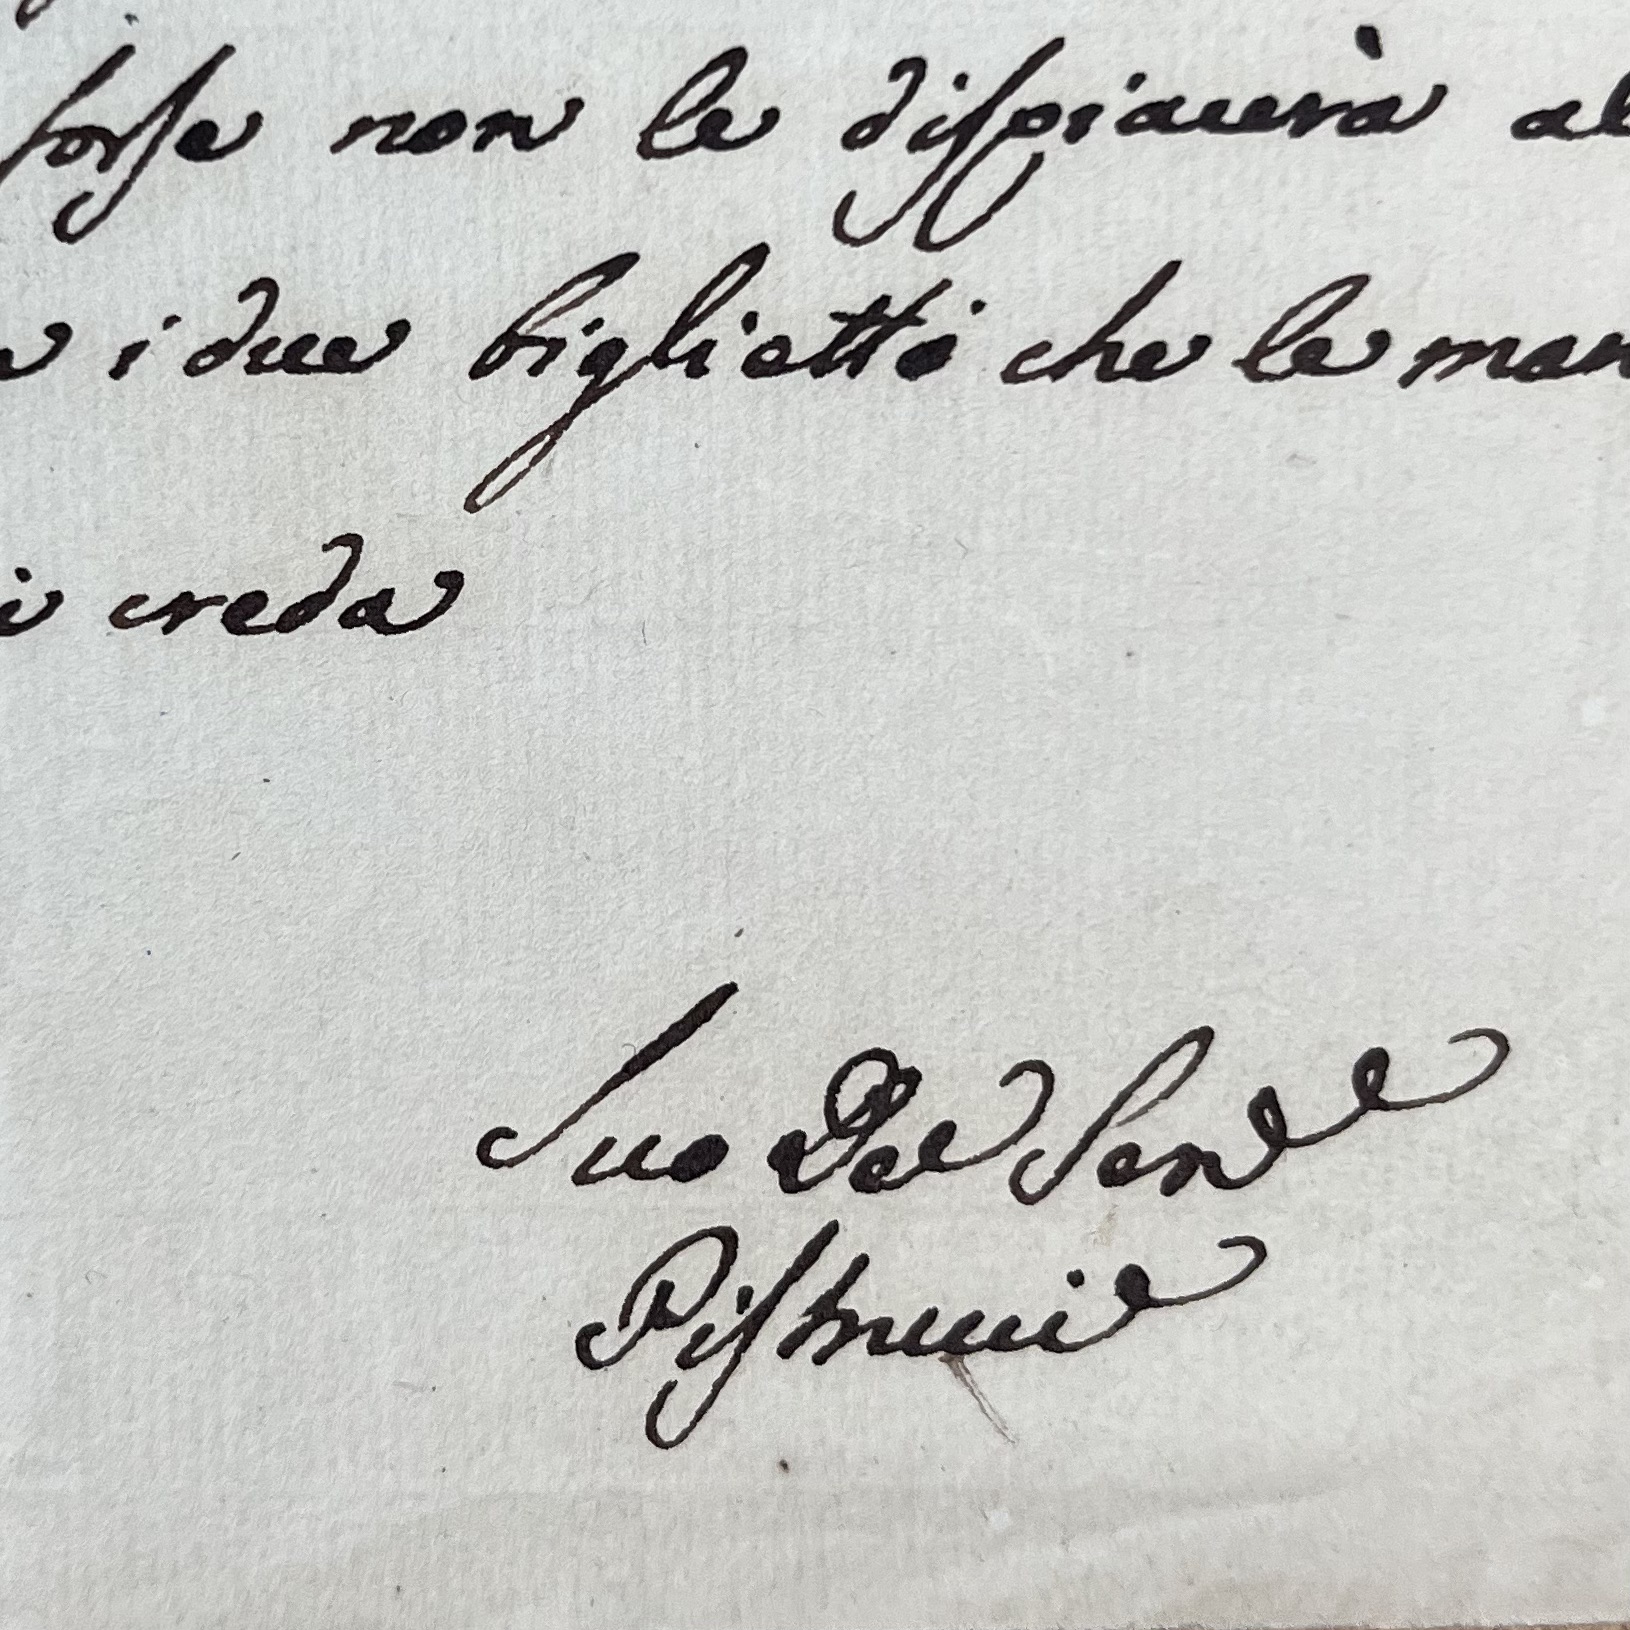 forse non le dispiacerà al
i due biglietti che le man
i creda
Suo Dev Serv
Pistrucci